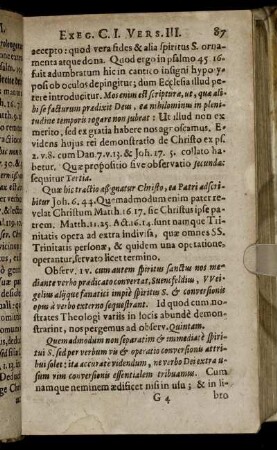 EXEG. C. I. VERS. III. 87
accepto: quod vera fides & alia spiritus S. orna-
menta atque dona. Quod ergo in psalmo 45 16.
fuit adumbratum hic in cantico insigni hypoty-
posi ob oculos depingitur; dum Ecclesia illud pe-
tere introducitur. Mos enim est scripturæ, ut, quæ ali-
bi se facturum prædixit Deus, ea nihilominus in pleni-
tudine temporis rogare non jubeat: Ut illud non ex
merito, sed ex gratia habere nos agnoscamus. E-
videns hujus rei demonstratio de Christo ex ps.
2. v. 8. cum Dan. 7. v. 13. & Joh. 17. 5. collato ha-
betur. Quæ propositio sive observatio secunda:
sequitur Tertia.
Quæ hic tractio assignatur Christo, ea Patri adscri-
bitur Joh. 6. 44. Quemadmodum enim pater re-
velat Christum Matth. 16 17. sic Christus ipse pa-
trem. Matth. 11. 25. Act. 16. 14. sunt namque Tri-
nitatis opera ad extra indivisa, quæ omnes SS.
Trinitatis personæ, & quidem una operatione,
operantur, servato licet termino.
Observ. IV. cum autem spiritus sanctus nos me-
diante verbo prædicato convertat, Suenfeldius, V Vei-
gelius aliique fanatici impiè spiritum S. & conversionis
opus à verbo externo sequestrant. Id quod cum no-
strates Theologi variis in locis abundè demon-
strarint, nos pergemus ad observ. Quintam.
Quemadmodum non separatim & immediatè spiri-
tui S. sed per verbum viis & operatio conversionis attri-
bui solet: ita accuratè videndum, ne verbo Dei extra u-
sum vim conversionis essentialem tribuamus. Cum
namque neminem ædificet nisi in usu; & in li-
G 4 bro